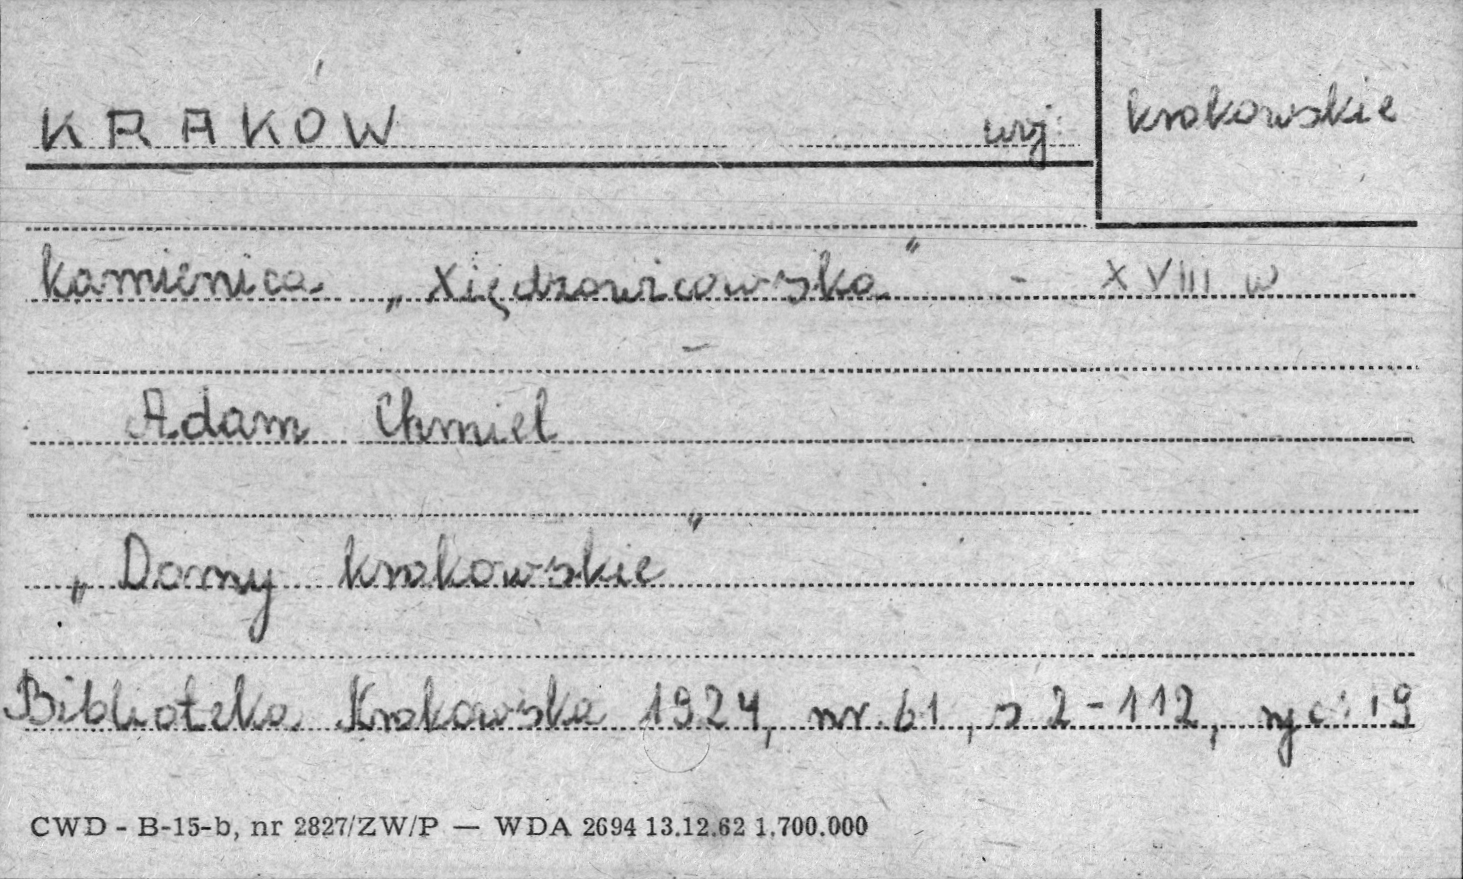 KRAKÓW woj. krakowskie
kamienica „Xiędzowicowska" - XVIII w
Adam Chmiel
„Domy krakowskie"
Biblioteka Krakowska 1924, nr. 61, s 2-112, ryc: 19
CWD - B-15-b, nr 2827/ZW/P — WDA 2694 13.12.62 1.700.000